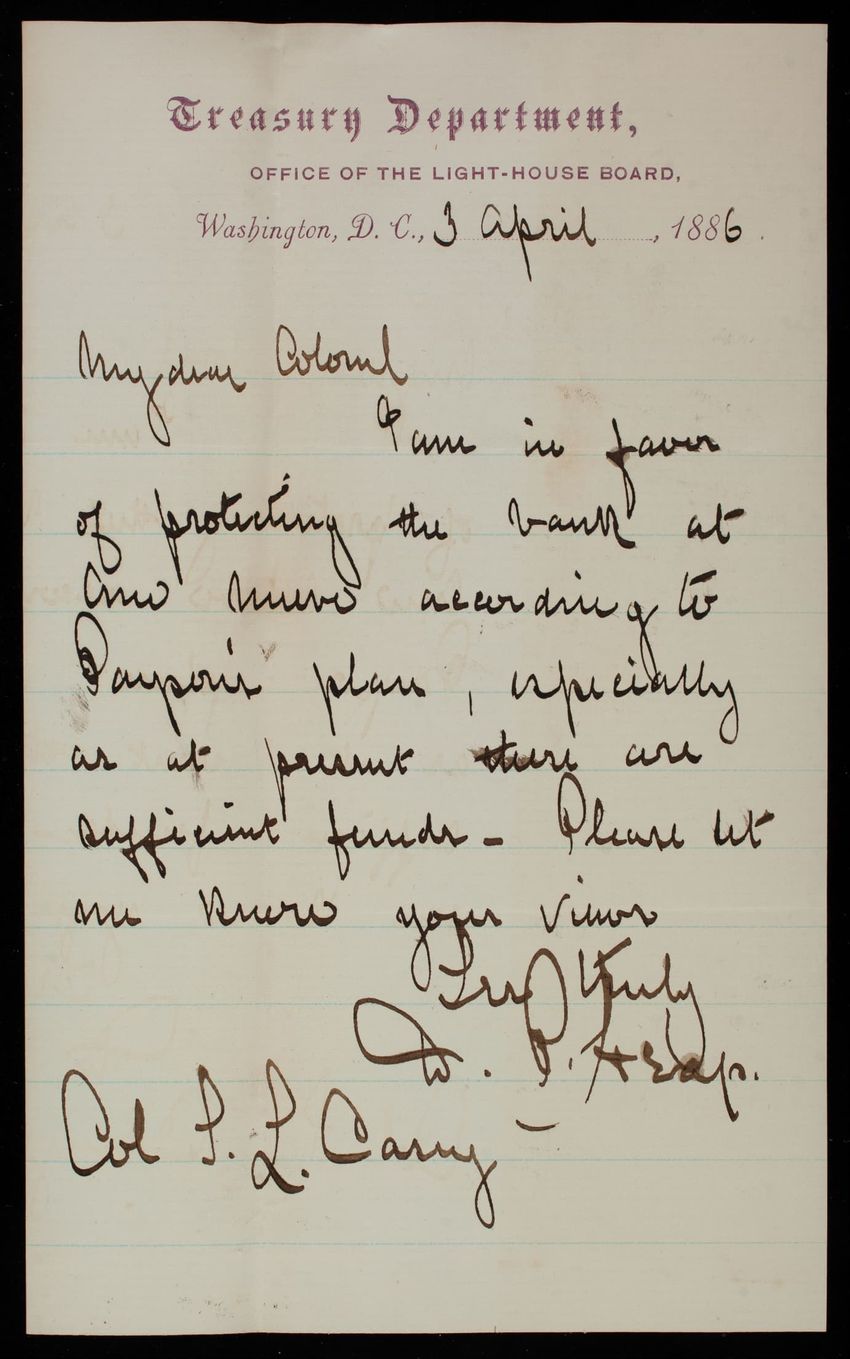 Treasury Department,
OFFICE OF THE LIGHT-HOUSE BOARD,
Washington, D. C., 3 April, 1886.
My dear Colonel
I am in favor
of protecting the bank at
Ano Nuevo according to
Payson's plan, especially
as at present there are
sufficient funds - Please let
me know your views
Yrs truly
D. P. Heap.
Col T. L. Casey -